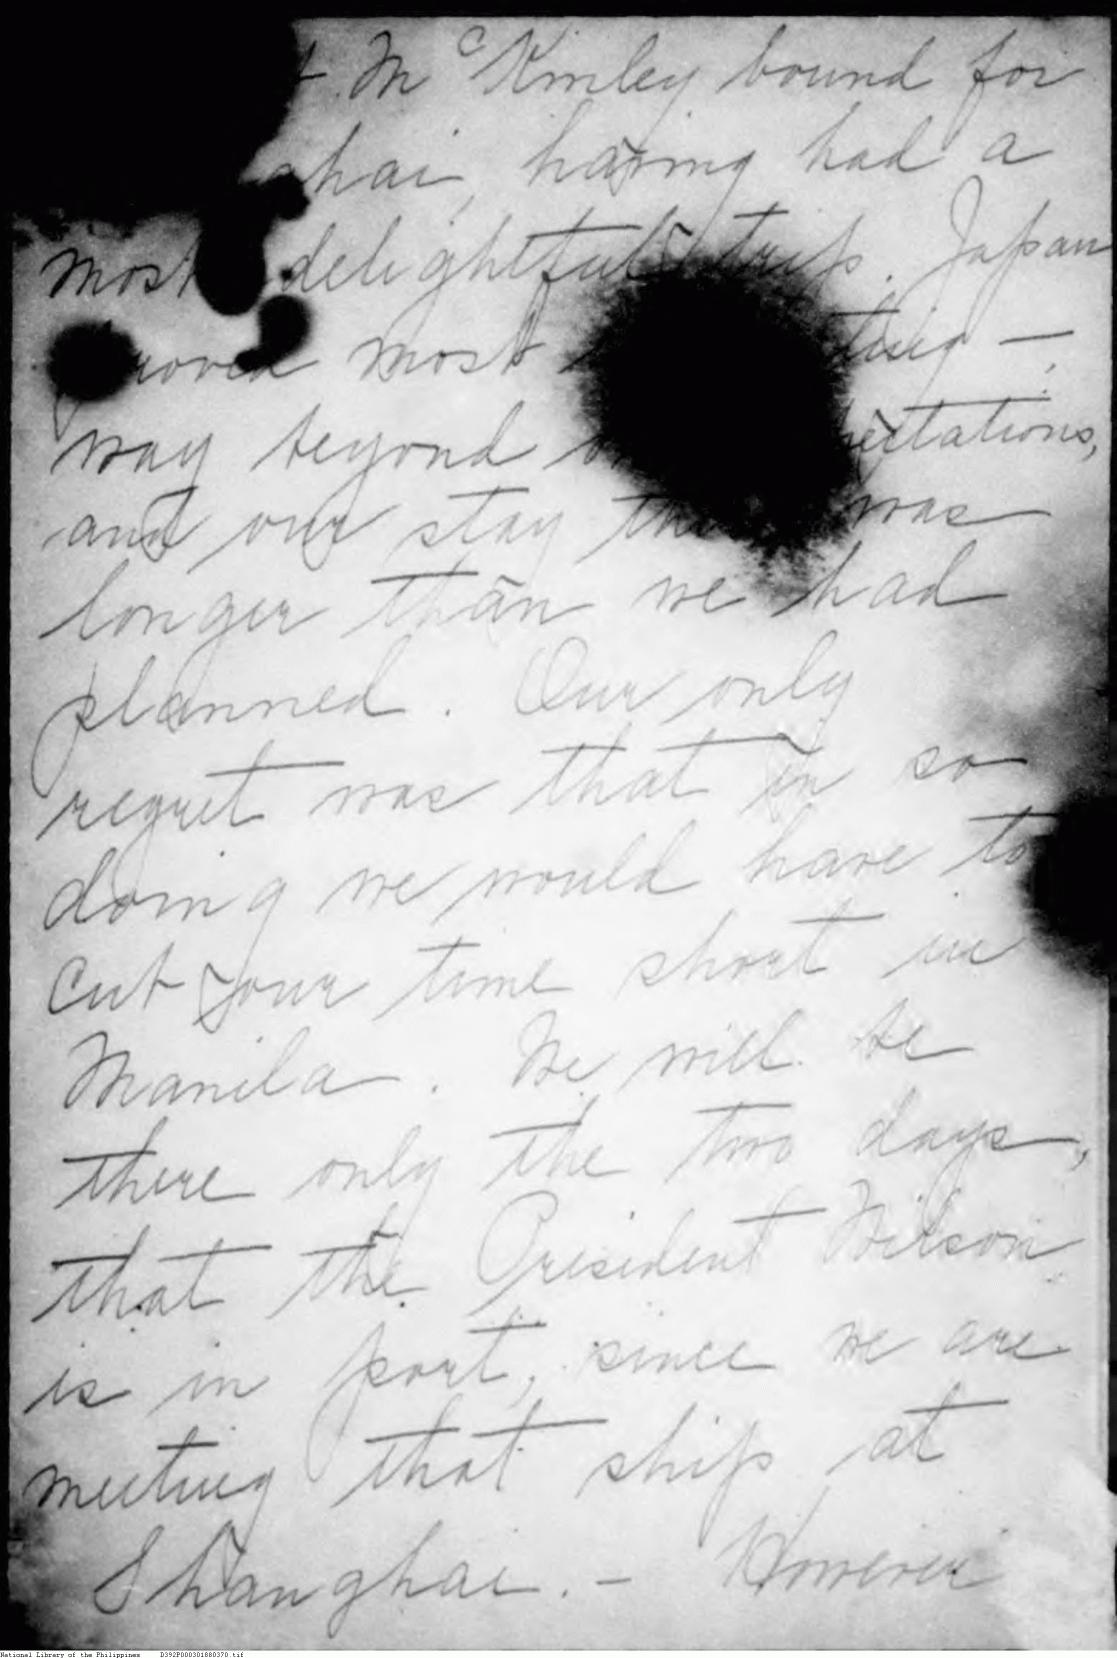 t McKinley bound for
ghai, having had a
most delightful trip. Japan
proved most ting -,
way beyond ectations,
and our stay was
longer than we had
planned. Our only
regret was that in so
doing we would have to
cut our time short in
Manila. We will be
there only the two days,
that the President Wilson
is in port, since we are
meeting that ship at
Shanghai. - However
National Library of the Philippines D392P000301880370.tif